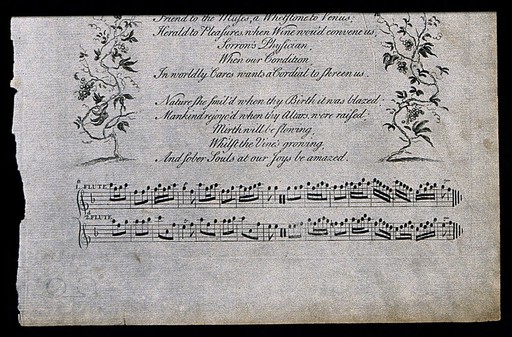 Friend to the Muses, a Whetstone to Venus;
Herald to Pleasures when Wine wou'd convene us,
Sorrow's Physician,
When our Condition,
In worldly Cares wants a Cordial to skreen us.
Nature she smil'd when thy Birth it was blazed;
Mankind rejoyc'd when thy Altars were raised;
Mirth will be flowing,
Whilst the Vine's growing,
And sober Souls at our Joys be amazed.
1. FLUTE
2. FLUTE